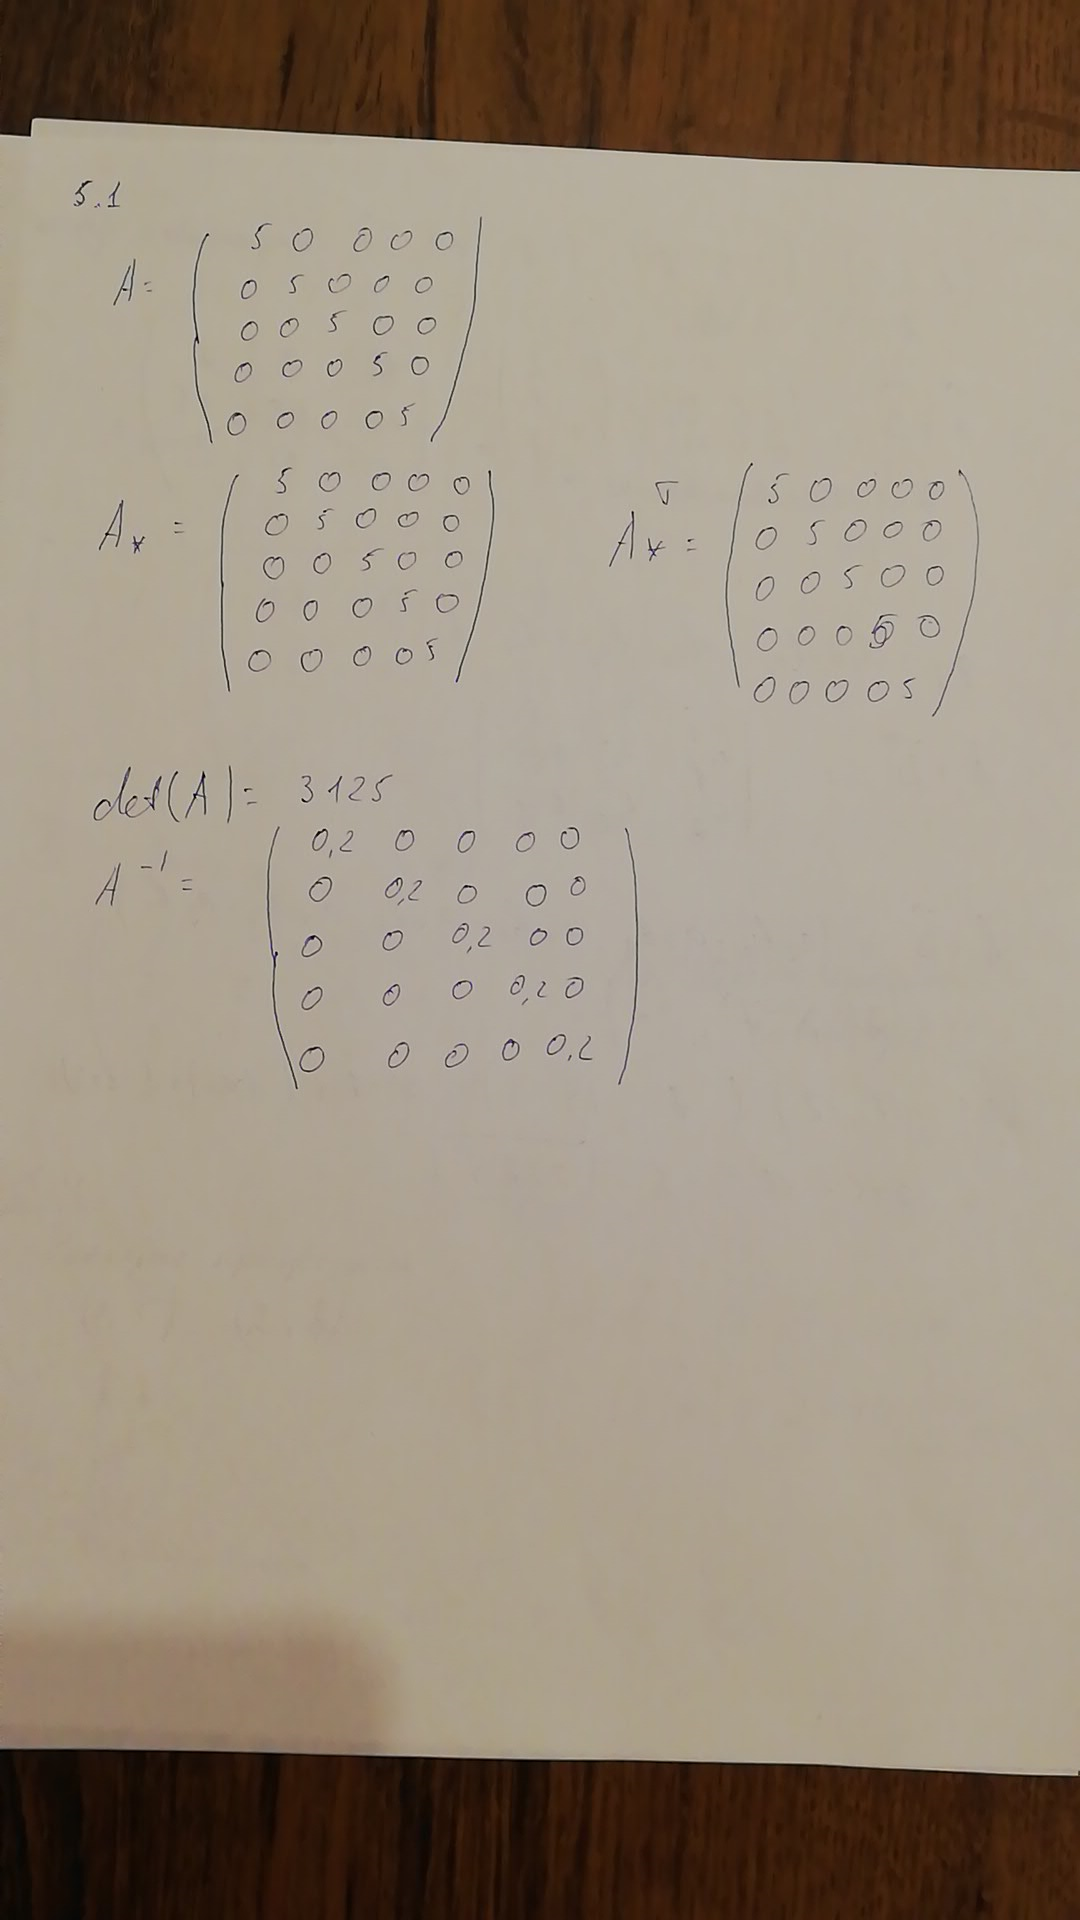 5.1
A=
5 0 0 0 0
0 5 0 0 0
0 0 5 0 0
0 0 0 5 0
0 0 0 0 5
A* =
5 0 0 0 0
0 5 0 0 0
0 0 5 0 0
0 0 0 5 0
0 0 0 0 5
A*ᵀ =
5 0 0 0 0
0 5 0 0 0
0 0 5 0 0
0 0 0 5 0
0 0 0 0 5
det(A)= 3125
A⁻¹ =
0,2 0 0 0 0
0 0,2 0 0 0
0 0 0,2 0 0
0 0 0 0,2 0
0 0 0 0 0,2